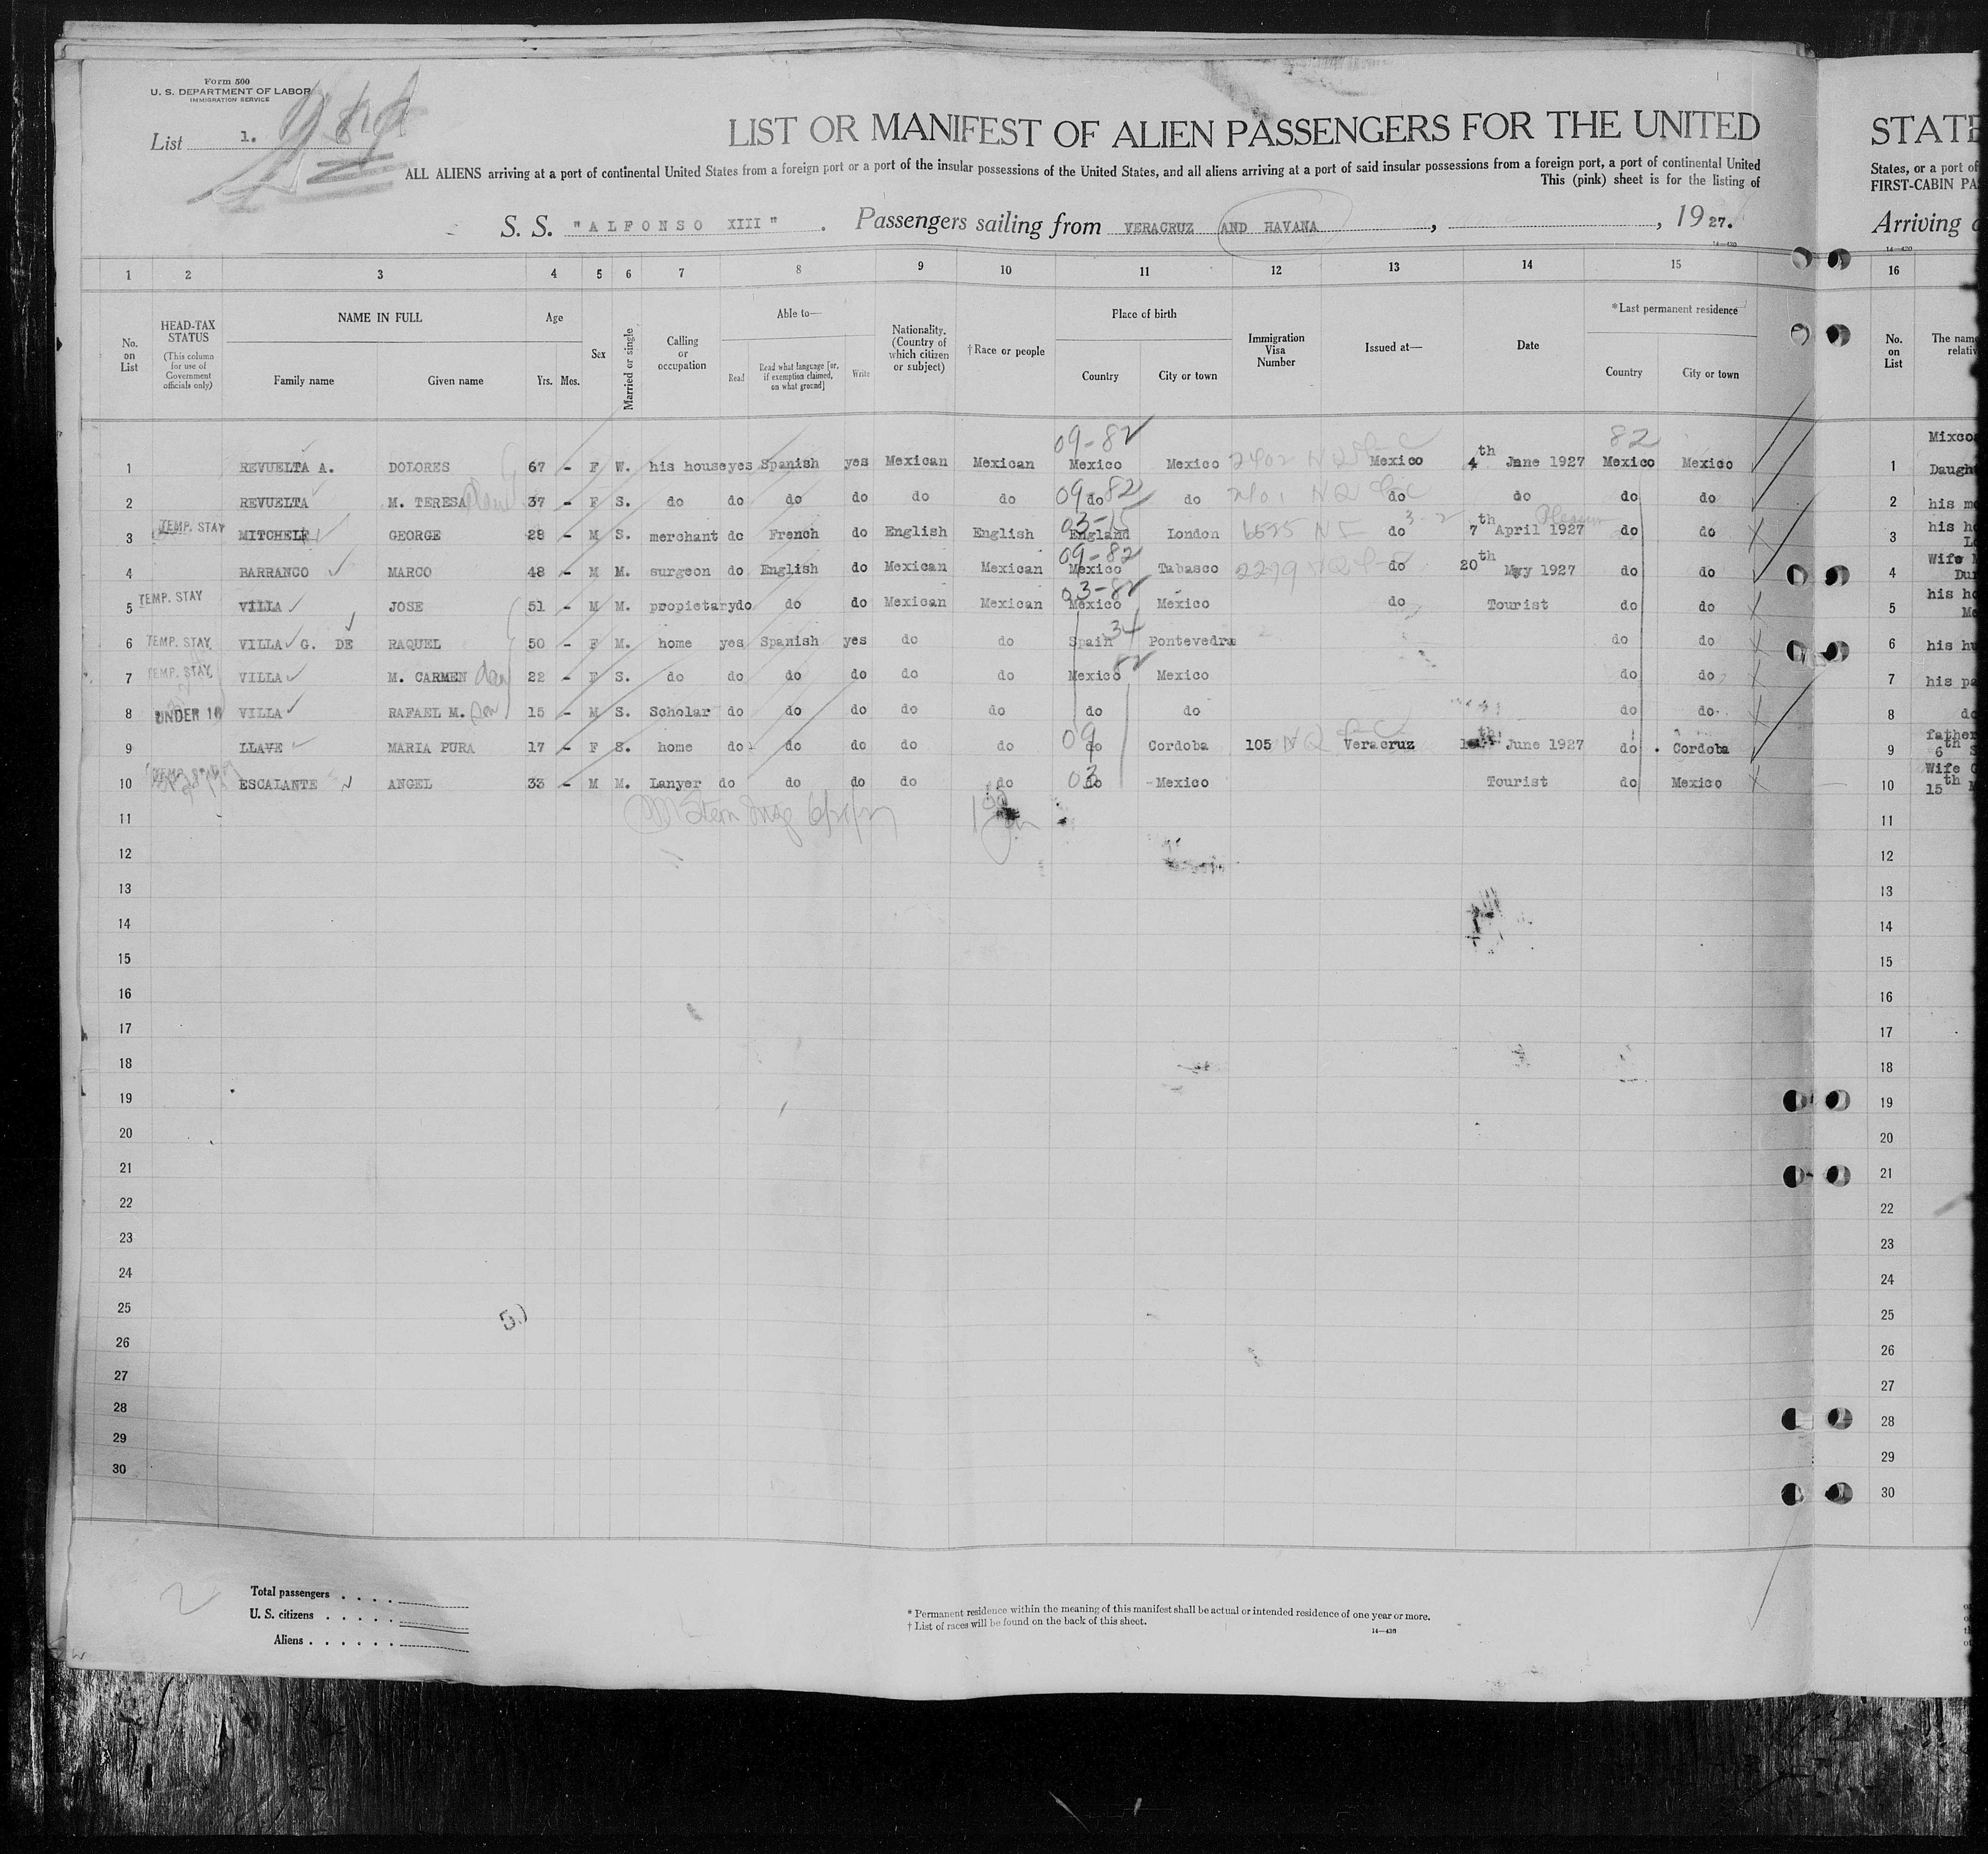 Form 500
U. S. DEPARTMENT OF LABOR
IMMIGRATION SERVICE
List 1.
LIST OR MANIFEST OF ALIEN PASSENGERS FOR THE UNITED
ALL ALIENS arriving at a port of continental United States from a foreign port or a port of the insular possessions of the United States, and all aliens arriving at a port of said insular possessions from a foreign port, a port of continental United
This (pink) sheet is for the listing of
S. S. "ALFONSO XIII" . Passengers sailing from VERACRUZ AND HAVANA , , 1927.
14—430
1 2 3 4 5 6 7 8 9 10 11 12 13 14 15
No. on List
HEAD-TAX STATUS (This column for use of Government officials only)
NAME IN FULL
Family name Given name
Age
Yrs. Mos.
Sex
Married or single
Calling or occupation
Able to—
Read
Read what language [or, if exemption claimed, on what ground]
Write
Nationality. (Country of which citizen or subject)
†Race or people
Place of birth
Country City or town
Immigration Visa Number
Issued at—
Date
*Last permanent residence
Country City or town
09-82 82
1 REVUELTA A. DOLORES 67 - F W. his house yes Spanish yes Mexican Mexican Mexico Mexico 2402 NQ Mexico 4th June 1927 Mexico Mexico
2 REVUELTA M. TERESA 37 - F S. do do do do do do 09-82 do do 2401 NQ do do do do
3 TEMP. STAY MITCHELE GEORGE 28 - M S. merchant do French do English English 03-15 England London do 3-2 7th April 1927 do do
4 BARRANCO MARCO 48 - M M. surgeon do English do Mexican Mexican 09-82 Mexico Tabasco 2279 NQ do 20th May 1927 do do
5 TEMP. STAY VILLA JOSE 51 - M M. propietary do do do Mexican Mexican 03-82 Mexico Mexico do Tourist do do
6 TEMP. STAY VILLA G. DE RAQUEL 50 - F M. home yes Spanish yes do do Spain 34 Pontevedra do do
7 TEMP. STAY VILLA M. CARMEN 22 - F S. do do do do do do Mexico 82 Mexico do do
8 UNDER 16 VILLA RAFAEL M. 15 - M S. Scholar do do do do do do do do do
9 LLAVE MARIA PURA 17 - F S. home do do do do do 09 do Cordoba 105 NQ Veracruz June 1927 do Cordoba
10 TEMP. STAY ESCALANTE ANGEL 33 - M M. Lanyer do do do do do 03 do Mexico Tourist do Mexico
11
12
13
14
15
16
17
18
19
20
21
22
23
24
25
26
27
28
29
30
Total passengers
U. S. citizens
Aliens
* Permanent residence within the meaning of this manifest shall be actual or intended residence of one year or more.
† List of races will be found on the back of this sheet.
14—430
STATE
States, or a port of
FIRST-CABIN PA
Arriving
14—430
16
No. on List
The name
relativ
Mixco
1 Daugh
2 his mo
3 his ho
4 Wife
5 his ho
6 his hu
7 his pa
8 do
9 father
6th
10 Wife
15th
11
12
13
14
15
16
17
18
19
20
21
22
23
24
25
26
27
28
29
30